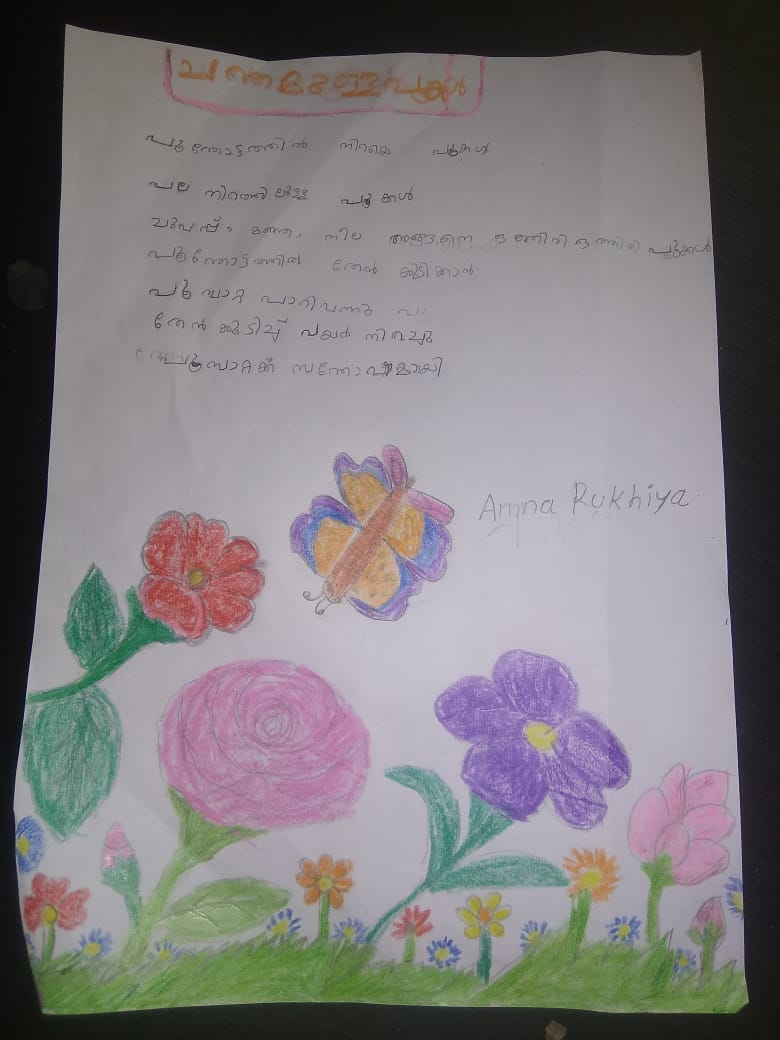 ചന്തമുള്ളപൂക്കൾ
പൂന്തോട്ടത്തിൽ നിറയെ പൂക്കൾ
പല നിറത്തിലുള്ള പൂക്കൾ
ചുവപ്പ്, മഞ്ഞ, നീല അങ്ങനെ ഒത്തിരി ഒത്തിരി പൂക്കൾ
പൂന്തോട്ടത്തിൽ തേൻ കുടിക്കാൻ
പൂമ്പാറ്റ പാറിവന്നു
തേൻ കുടിച്ച് വയർ നിറച്ചു
പൂമ്പാറ്റക്ക് സന്തോഷമായി
Amna Rukhiya